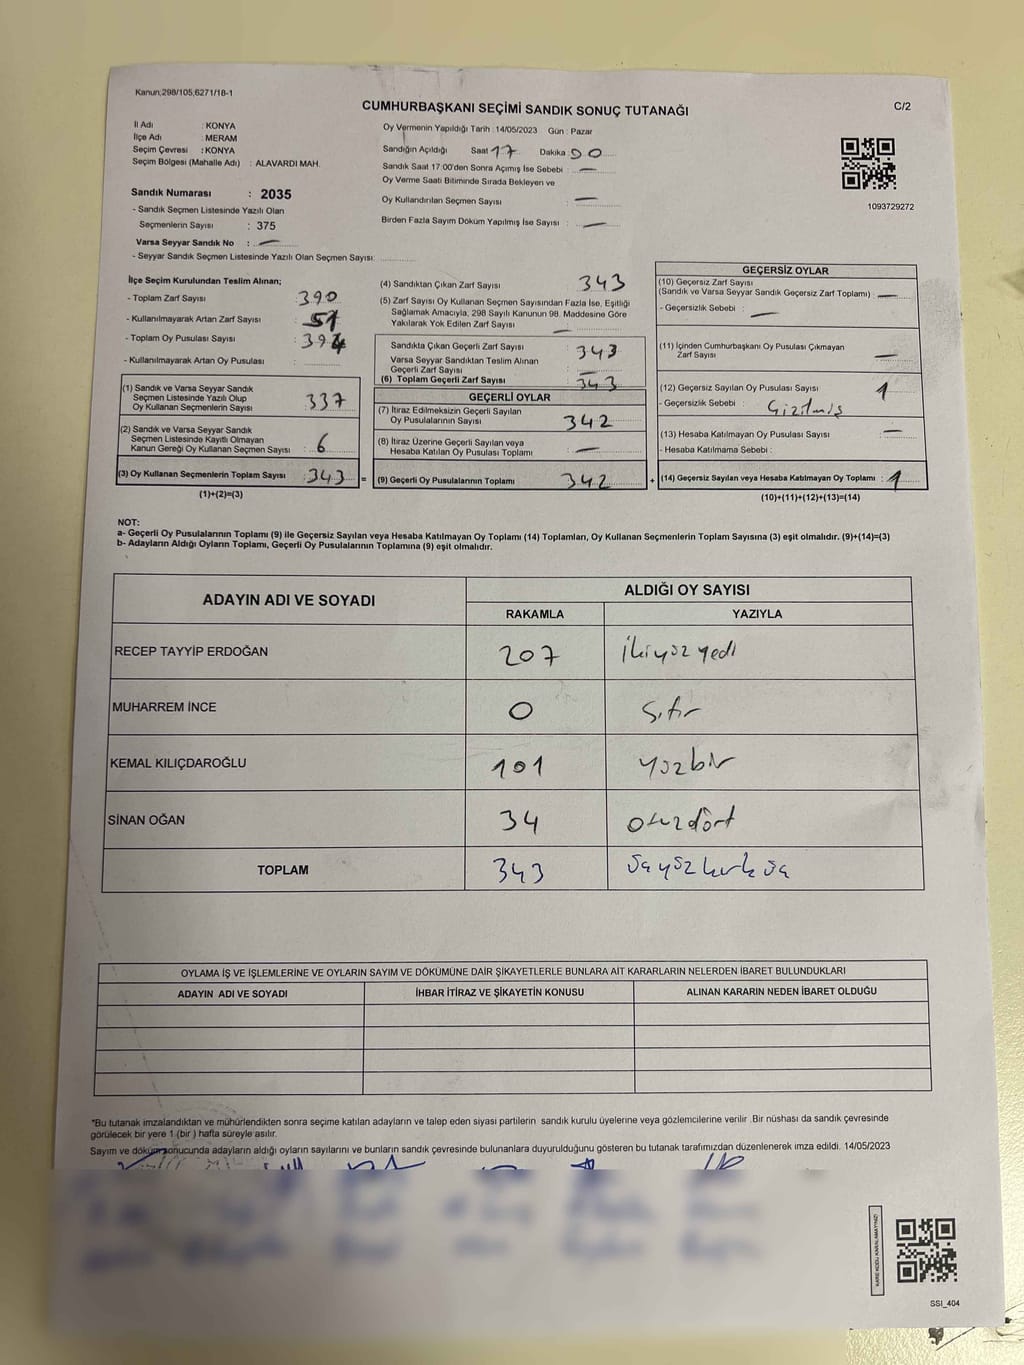 Kanun;298/105,6271/18-1
CUMHURBAŞKANI SEÇİMİ SANDIK SONUÇ TUTANAĞI
C/2
İl Adı : KONYA
İlçe Adı : MERAM
Seçim Çevresi : KONYA
Seçim Bölgesi (Mahalle Adı) : ALAVARDI MAH.
Sandık Numarası : 2035
- Sandık Seçmen Listesinde Yazılı Olan
Seçmenlerin Sayısı : 375
Varsa Seyyar Sandık No : —
- Seyyar Sandık Seçmen Listesinde Yazılı Olan Seçmen Sayısı:
Oy Vermenin Yapıldığı Tarih : 14/05/2023 Gün : Pazar
Sandığın Açıldığı Saat 17 Dakika 00
Sandık Saat 17:00'den Sonra Açılmış İse Sebebi : —
Oy Verme Saati Bitiminde Sırada Bekleyen ve
Oy Kullandırılan Seçmen Sayısı : —
Birden Fazla Sayım Döküm Yapılmış İse Sayısı : —
1093729272
İlçe Seçim Kurulundan Teslim Alınan;
- Toplam Zarf Sayısı : 390
- Kullanılmayarak Artan Zarf Sayısı :
- Toplam Oy Pusulası Sayısı :
- Kullanılmayarak Artan Oy Pusulası :
(1) Sandık ve Varsa Seyyar Sandık
Seçmen Listesinde Yazılı Olup
Oy Kullanan Seçmenlerin Sayısı : 337
(2) Sandık ve Varsa Seyyar Sandık
Seçmen Listesinde Kayıtlı Olmayan
Kanun Gereği Oy Kullanan Seçmen Sayısı : 6
(3) Oy Kullanan Seçmenlerin Toplam Sayısı : 343
(1)+(2)=(3)
=
(4) Sandıktan Çıkan Zarf Sayısı : 343
(5) Zarf Sayısı Oy Kullanan Seçmen Sayısından Fazla İse, Eşitliği
Sağlamak Amacıyla, 298 Sayılı Kanunun 98. Maddesine Göre
Yakılarak Yok Edilen Zarf Sayısı : —
Sandıkta Çıkan Geçerli Zarf Sayısı : 343
Varsa Seyyar Sandıktan Teslim Alınan
Geçerli Zarf Sayısı : —
(6) Toplam Geçerli Zarf Sayısı : 343
GEÇERLİ OYLAR
(7) İtiraz Edilmeksizin Geçerli Sayılan
Oy Pusulalarının Sayısı : 342
(8) İtiraz Üzerine Geçerli Sayılan veya
Hesaba Katılan Oy Pusulası Toplamı : —
(9) Geçerli Oy Pusulalarının Toplamı : 342
+
GEÇERSİZ OYLAR
(10) Geçersiz Zarf Sayısı
(Sandık ve Varsa Seyyar Sandık Geçersiz Zarf Toplamı) : —
- Geçersizlik Sebebi : —
(11) İçinden Cumhurbaşkanı Oy Pusulası Çıkmayan
Zarf Sayısı : —
(12) Geçersiz Sayılan Oy Pusulası Sayısı : 1
- Geçersizlik Sebebi : Çizilmiş
(13) Hesaba Katılmayan Oy Pusulası Sayısı : —
- Hesaba Katılmama Sebebi :
(14) Geçersiz Sayılan veya Hesaba Katılmayan Oy Toplamı : 1
(10)+(11)+(12)+(13)=(14)
NOT:
a- Geçerli Oy Pusulalarının Toplamı (9) ile Geçersiz Sayılan veya Hesaba Katılmayan Oy Toplamı (14) Toplamları, Oy Kullanan Seçmenlerin Toplam Sayısına (3) eşit olmalıdır. (9)+(14)=(3)
b- Adayların Aldığı Oyların Toplamı, Geçerli Oy Pusulalarının Toplamına (9) eşit olmalıdır.
ADAYIN ADI VE SOYADI ALDIĞI OY SAYISI
RAKAMLA YAZIYLA
RECEP TAYYİP ERDOĞAN 207 İkiyüz yedi
MUHARREM İNCE 0 Sıfır
KEMAL KILIÇDAROĞLU 101 yüzbir
SİNAN OĞAN 34 otuzdört
TOPLAM 343 üçyüzkırküç
OYLAMA İŞ VE İŞLEMLERİNE VE OYLARIN SAYIM VE DÖKÜMÜNE DAİR ŞİKAYETLERLE BUNLARA AİT KARARLARIN NELERDEN İBARET BULUNDUKLARI
ADAYIN ADI VE SOYADI İHBAR İTİRAZ VE ŞİKAYETİN KONUSU ALINAN KARARIN NEDEN İBARET OLDUĞU
*Bu tutanak imzalandıktan ve mühürlendikten sonra seçime katılan adayların ve talep eden siyasi partilerin sandık kurulu üyelerine veya gözlemcilerine verilir. Bir nüshası da sandık çevresinde
görülecek bir yere 1 (bir) hafta süreyle asılır.
Sayım ve döküm sonucunda adayların aldığı oyların sayılarını ve bunların sandık çevresinde bulunanlara duyurulduğunu gösteren bu tutanak tarafımızdan düzenlenerek imza edildi. 14/05/2023
KARE KODU KARALAMAYINIZ!
SSI_404